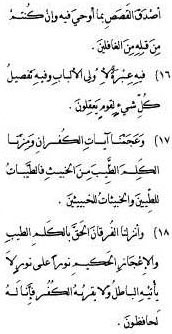 أصدق القصص بما أوحي فيه وإن كنتم
من قبله من الغافلين.
(١٦ فيه عبرة لأولى الألباب وفيه تفصيل
كل شيء لقوم يعقلون.
(١٧ وعجمنا آيات الكفران وميزنا
الكلم الطيب من الخبيث فالطيبات
للطيبين والخبيثات للخبيثين.
(١٨ وأنزلنا الفرقان الحق بالكلم الطيب
والإعجاز الحكيم نورا على نور لا
يأتيه الباطل ولا يقربه الكفر وإنا له
لحافظون.